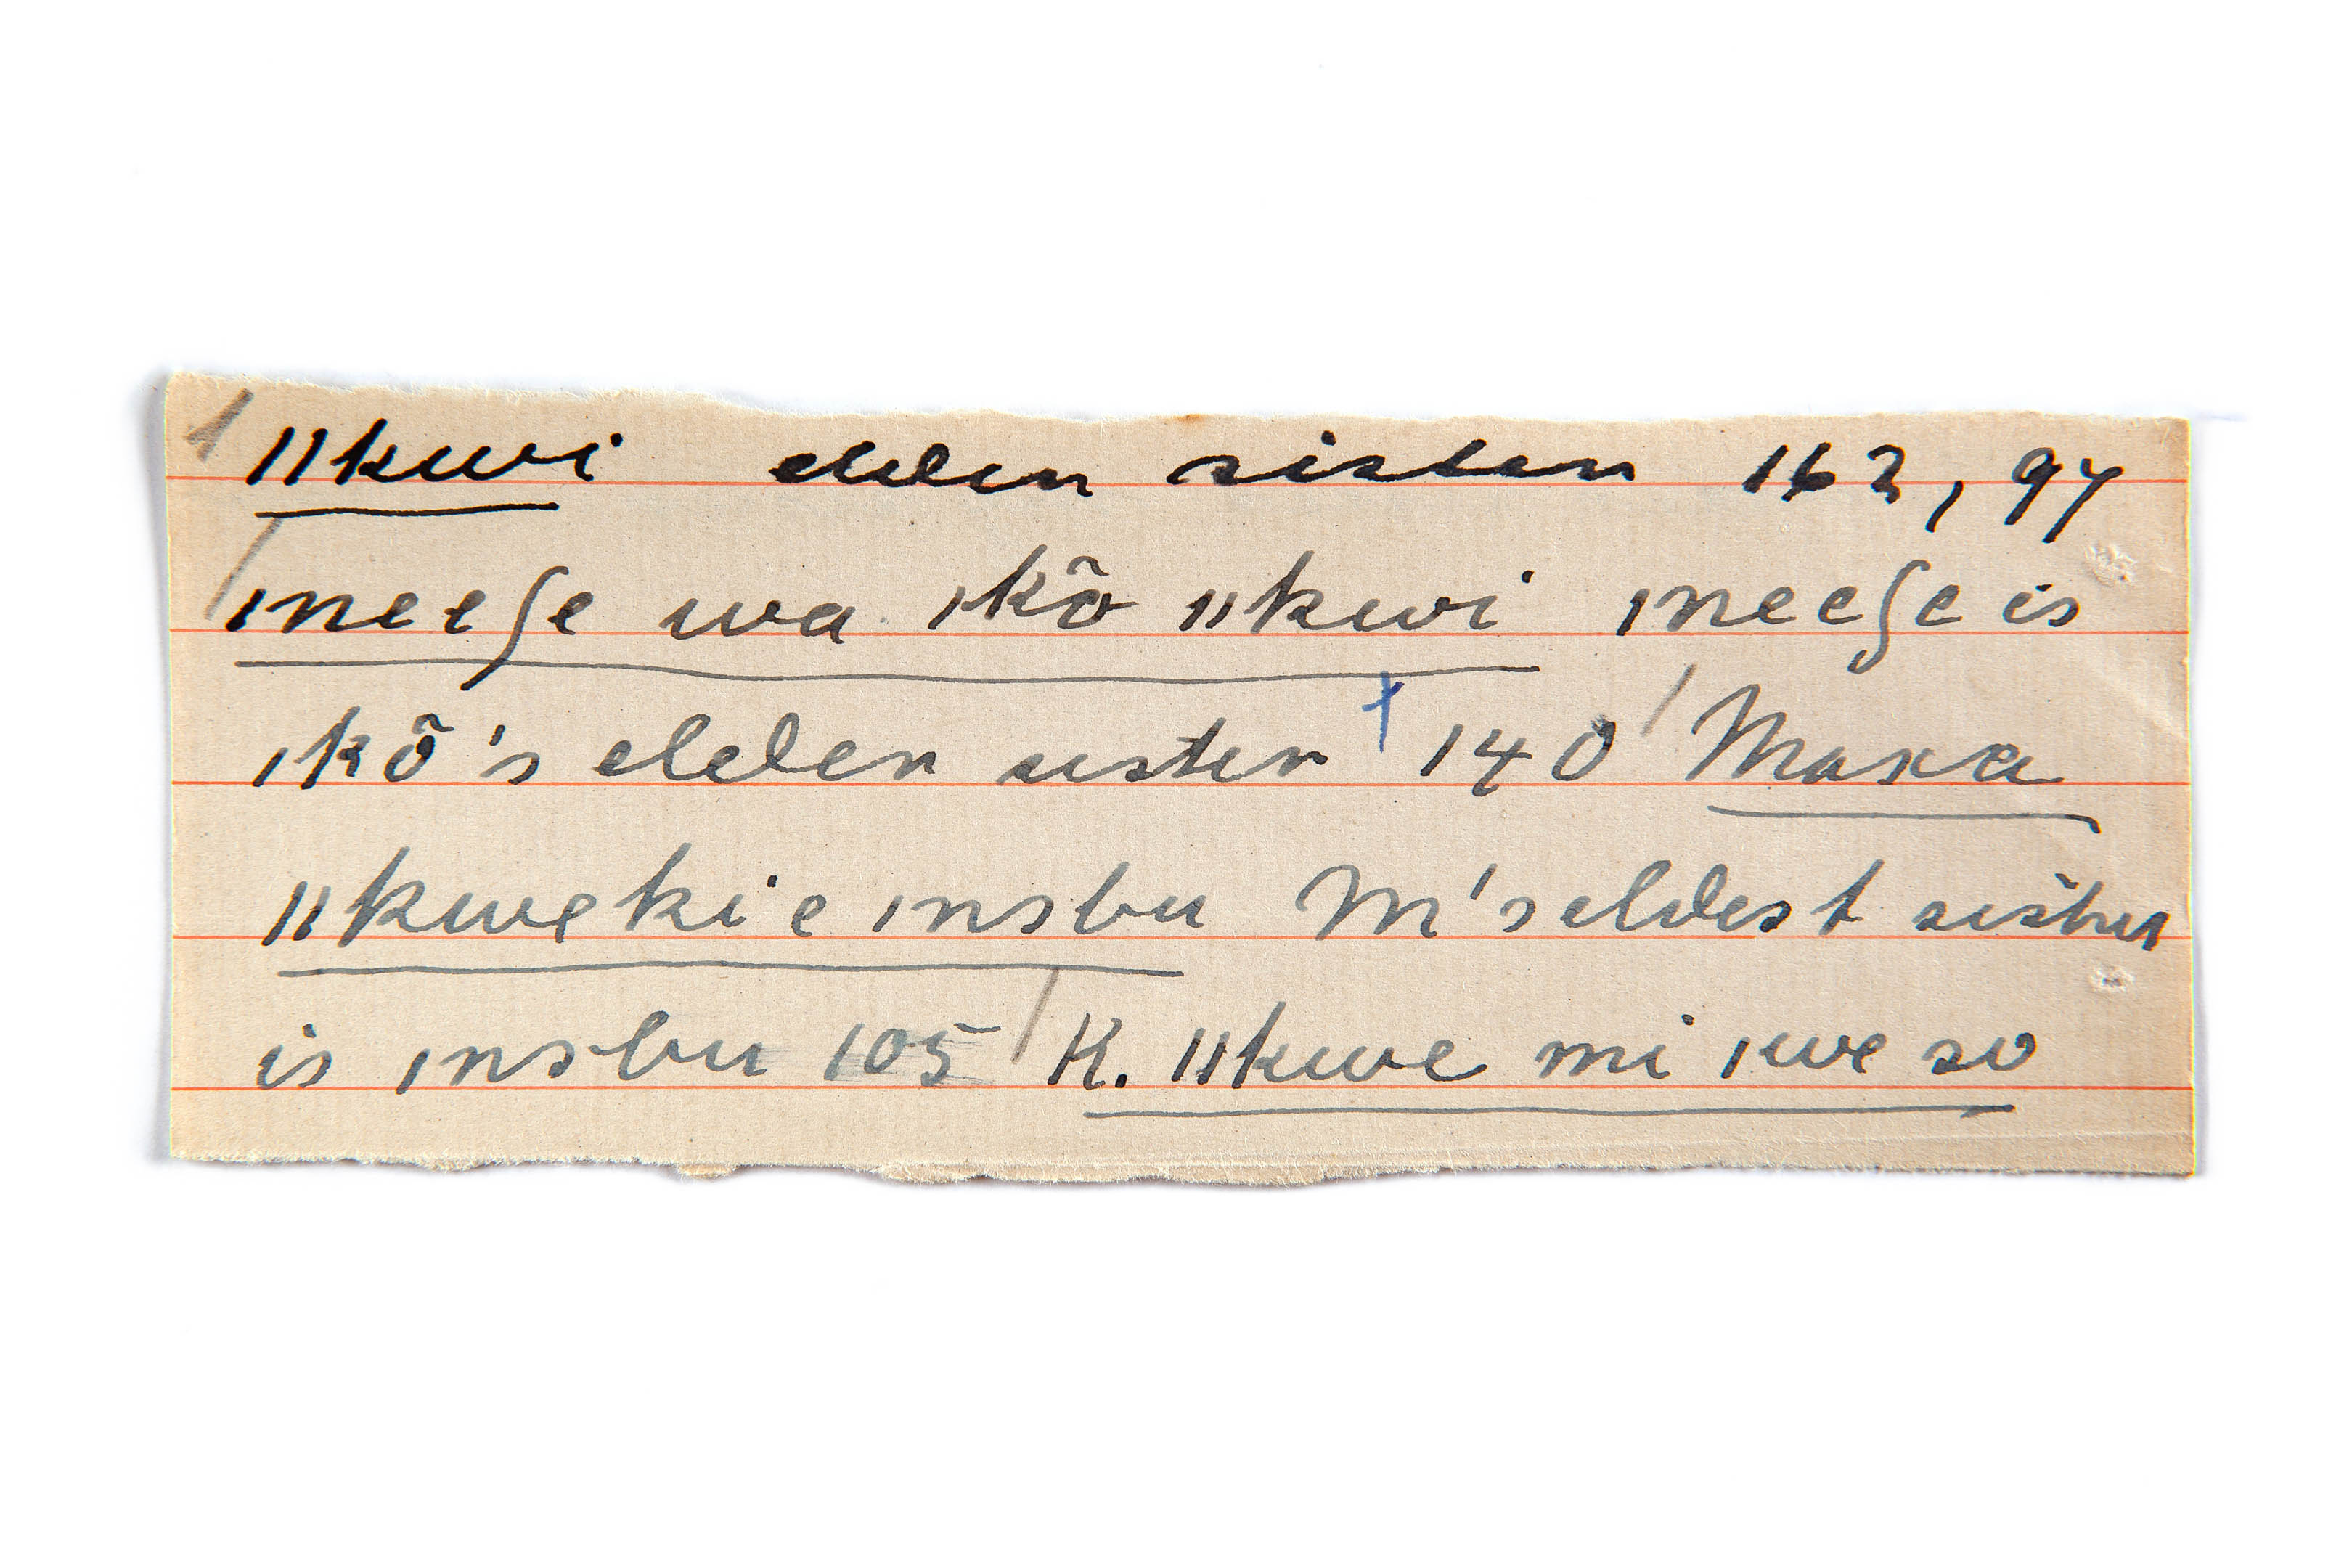 ǁkwi elder sister 163, 97
ǀneeʃe wa ǀkõ ǁkwi ǀneeʃe is
ǀkõ's elder sister 140 Maxa
ǁkwe ki e ǀnsbu M's eldest sister
is ǀnsbu 105 K. ǁkwe mi ǀwe so